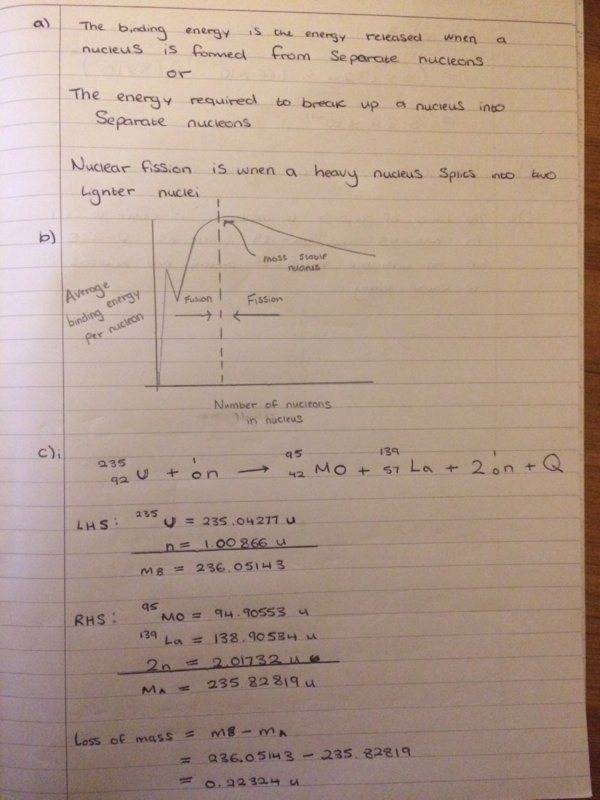 a) The binding energy is the energy released when a
nucleus is formed from separate nucleons
or
The energy required to break up a nucleus into
Separate nucleons
Nuclear fission is when a heavy nucleus splits into two
Lighter nuclei
b)
most stable
nucleus
Average
binding energy
per nucleon
Fusion
Fission
Number of nucleons
in nucleus
c)i
²³⁵₉₂U + ¹₀n → ⁹⁵₄₂Mo + ¹³⁹₅₇La + 2¹₀n + Q
LHS: ²³⁵U = 235.04277 u
n = 1.00866 u
MB = 236.05143
RHS: ⁹⁵Mo = 94.90553 u
¹³⁹La = 138.90534 u
2n = 2.01732 u
MA = 235.82819 u
Loss of mass = MB - MA
= 236.05143 - 235.82819
= 0.22324 u